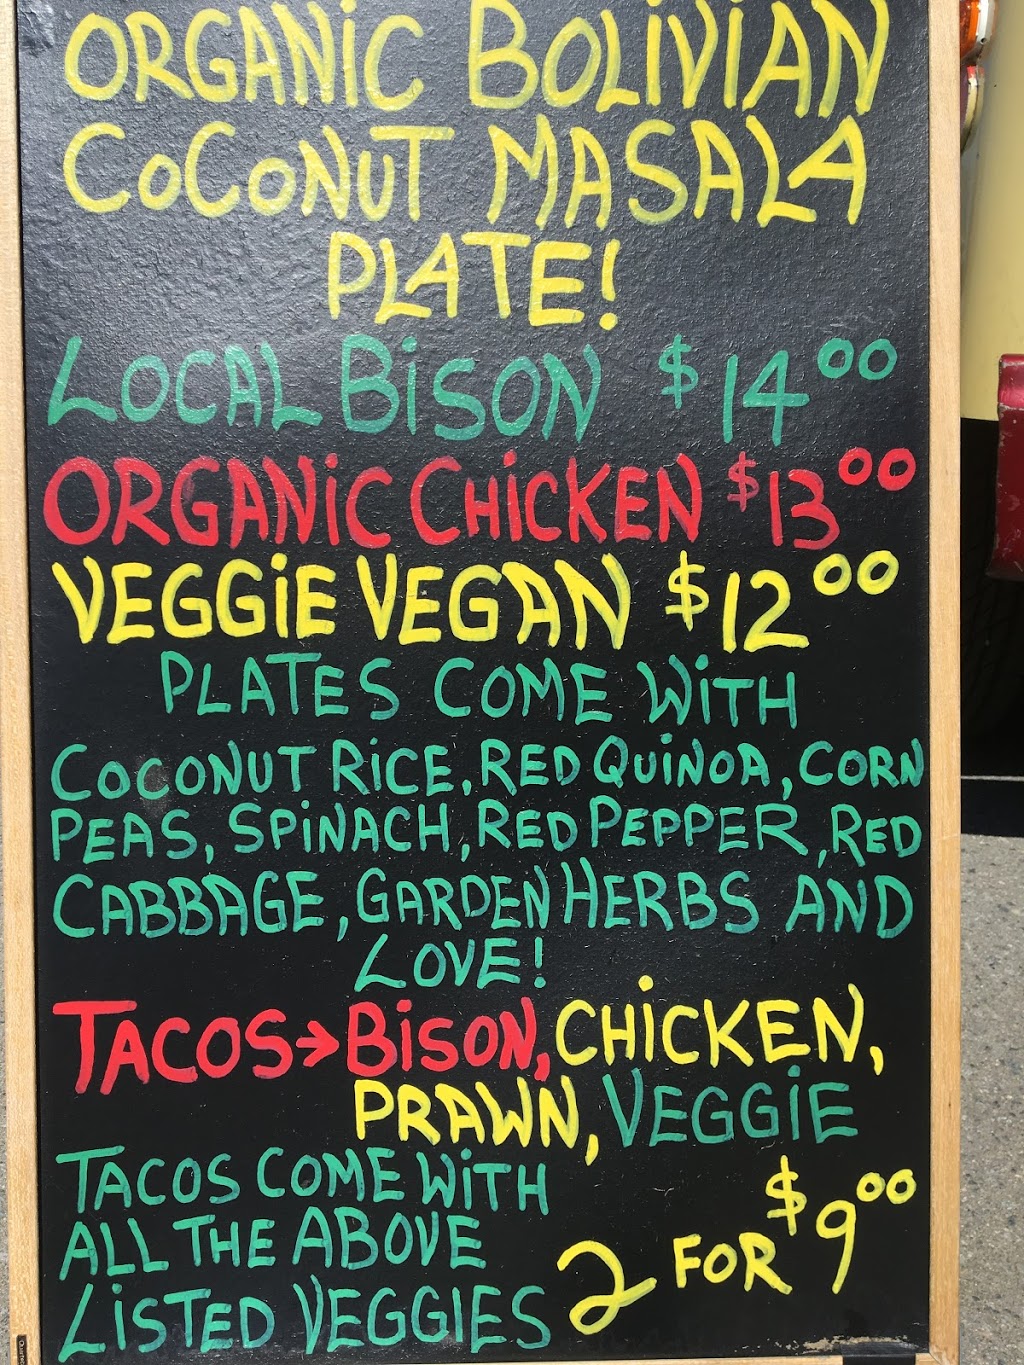 ORGANIC BOLIVIAN
COCONUT MASALA
PLATE!
LOCAL BISON $14.00
ORGANIC CHICKEN $13.00
VEGGIE VEGAN $12.00
PLATES COME WITH
COCONUT RICE, RED QUINOA, CORN
PEAS, SPINACH, RED PEPPER, RED
CABBAGE, GARDEN HERBS AND
LOVE!
TACOS→BISON, CHICKEN,
PRAWN, VEGGIE
TACOS COME WITH
ALL THE ABOVE
LISTED VEGGIES
2 FOR $9.00